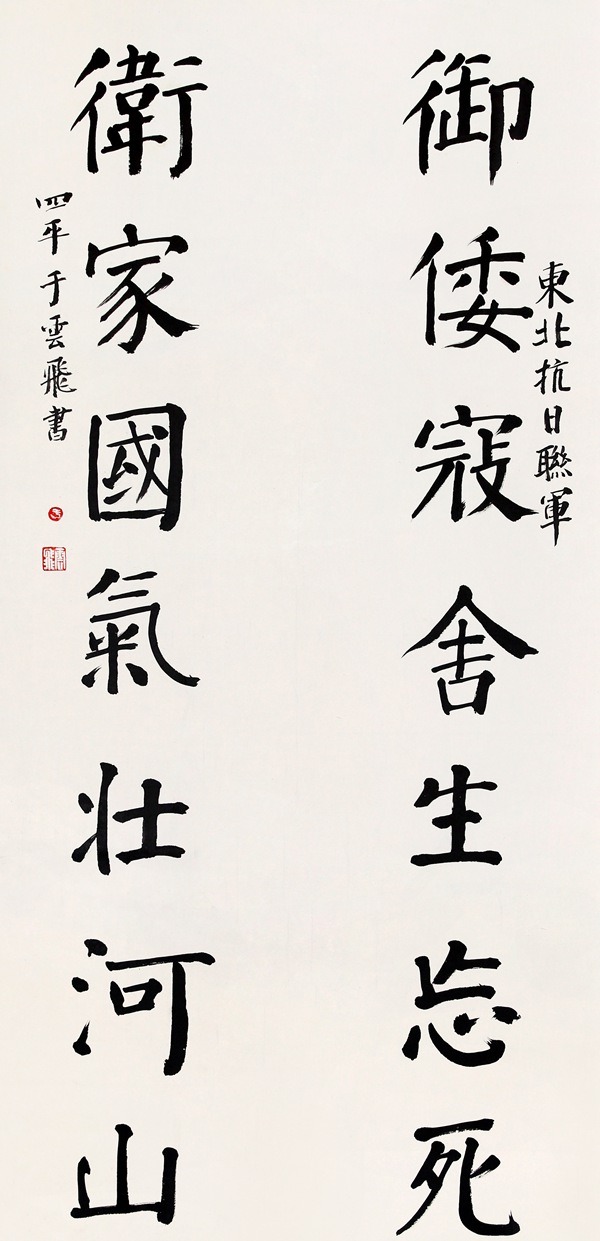 東北抗日聯軍
御倭寇舍生忘死
衛家國氣壯河山
四平于雲飛書